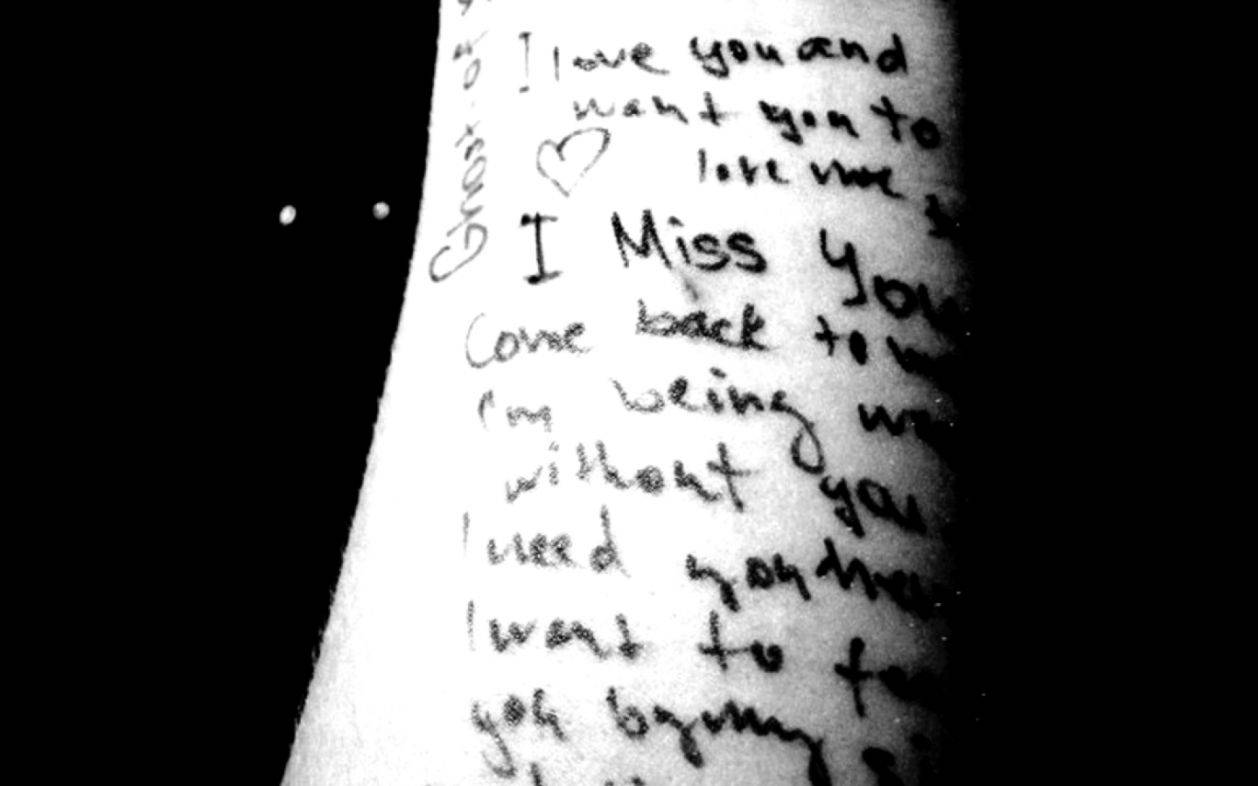 I love you and
want you to
love me
I Miss You
Come back to
I'm being
without you
I need you
I want to
you by my
Ghost